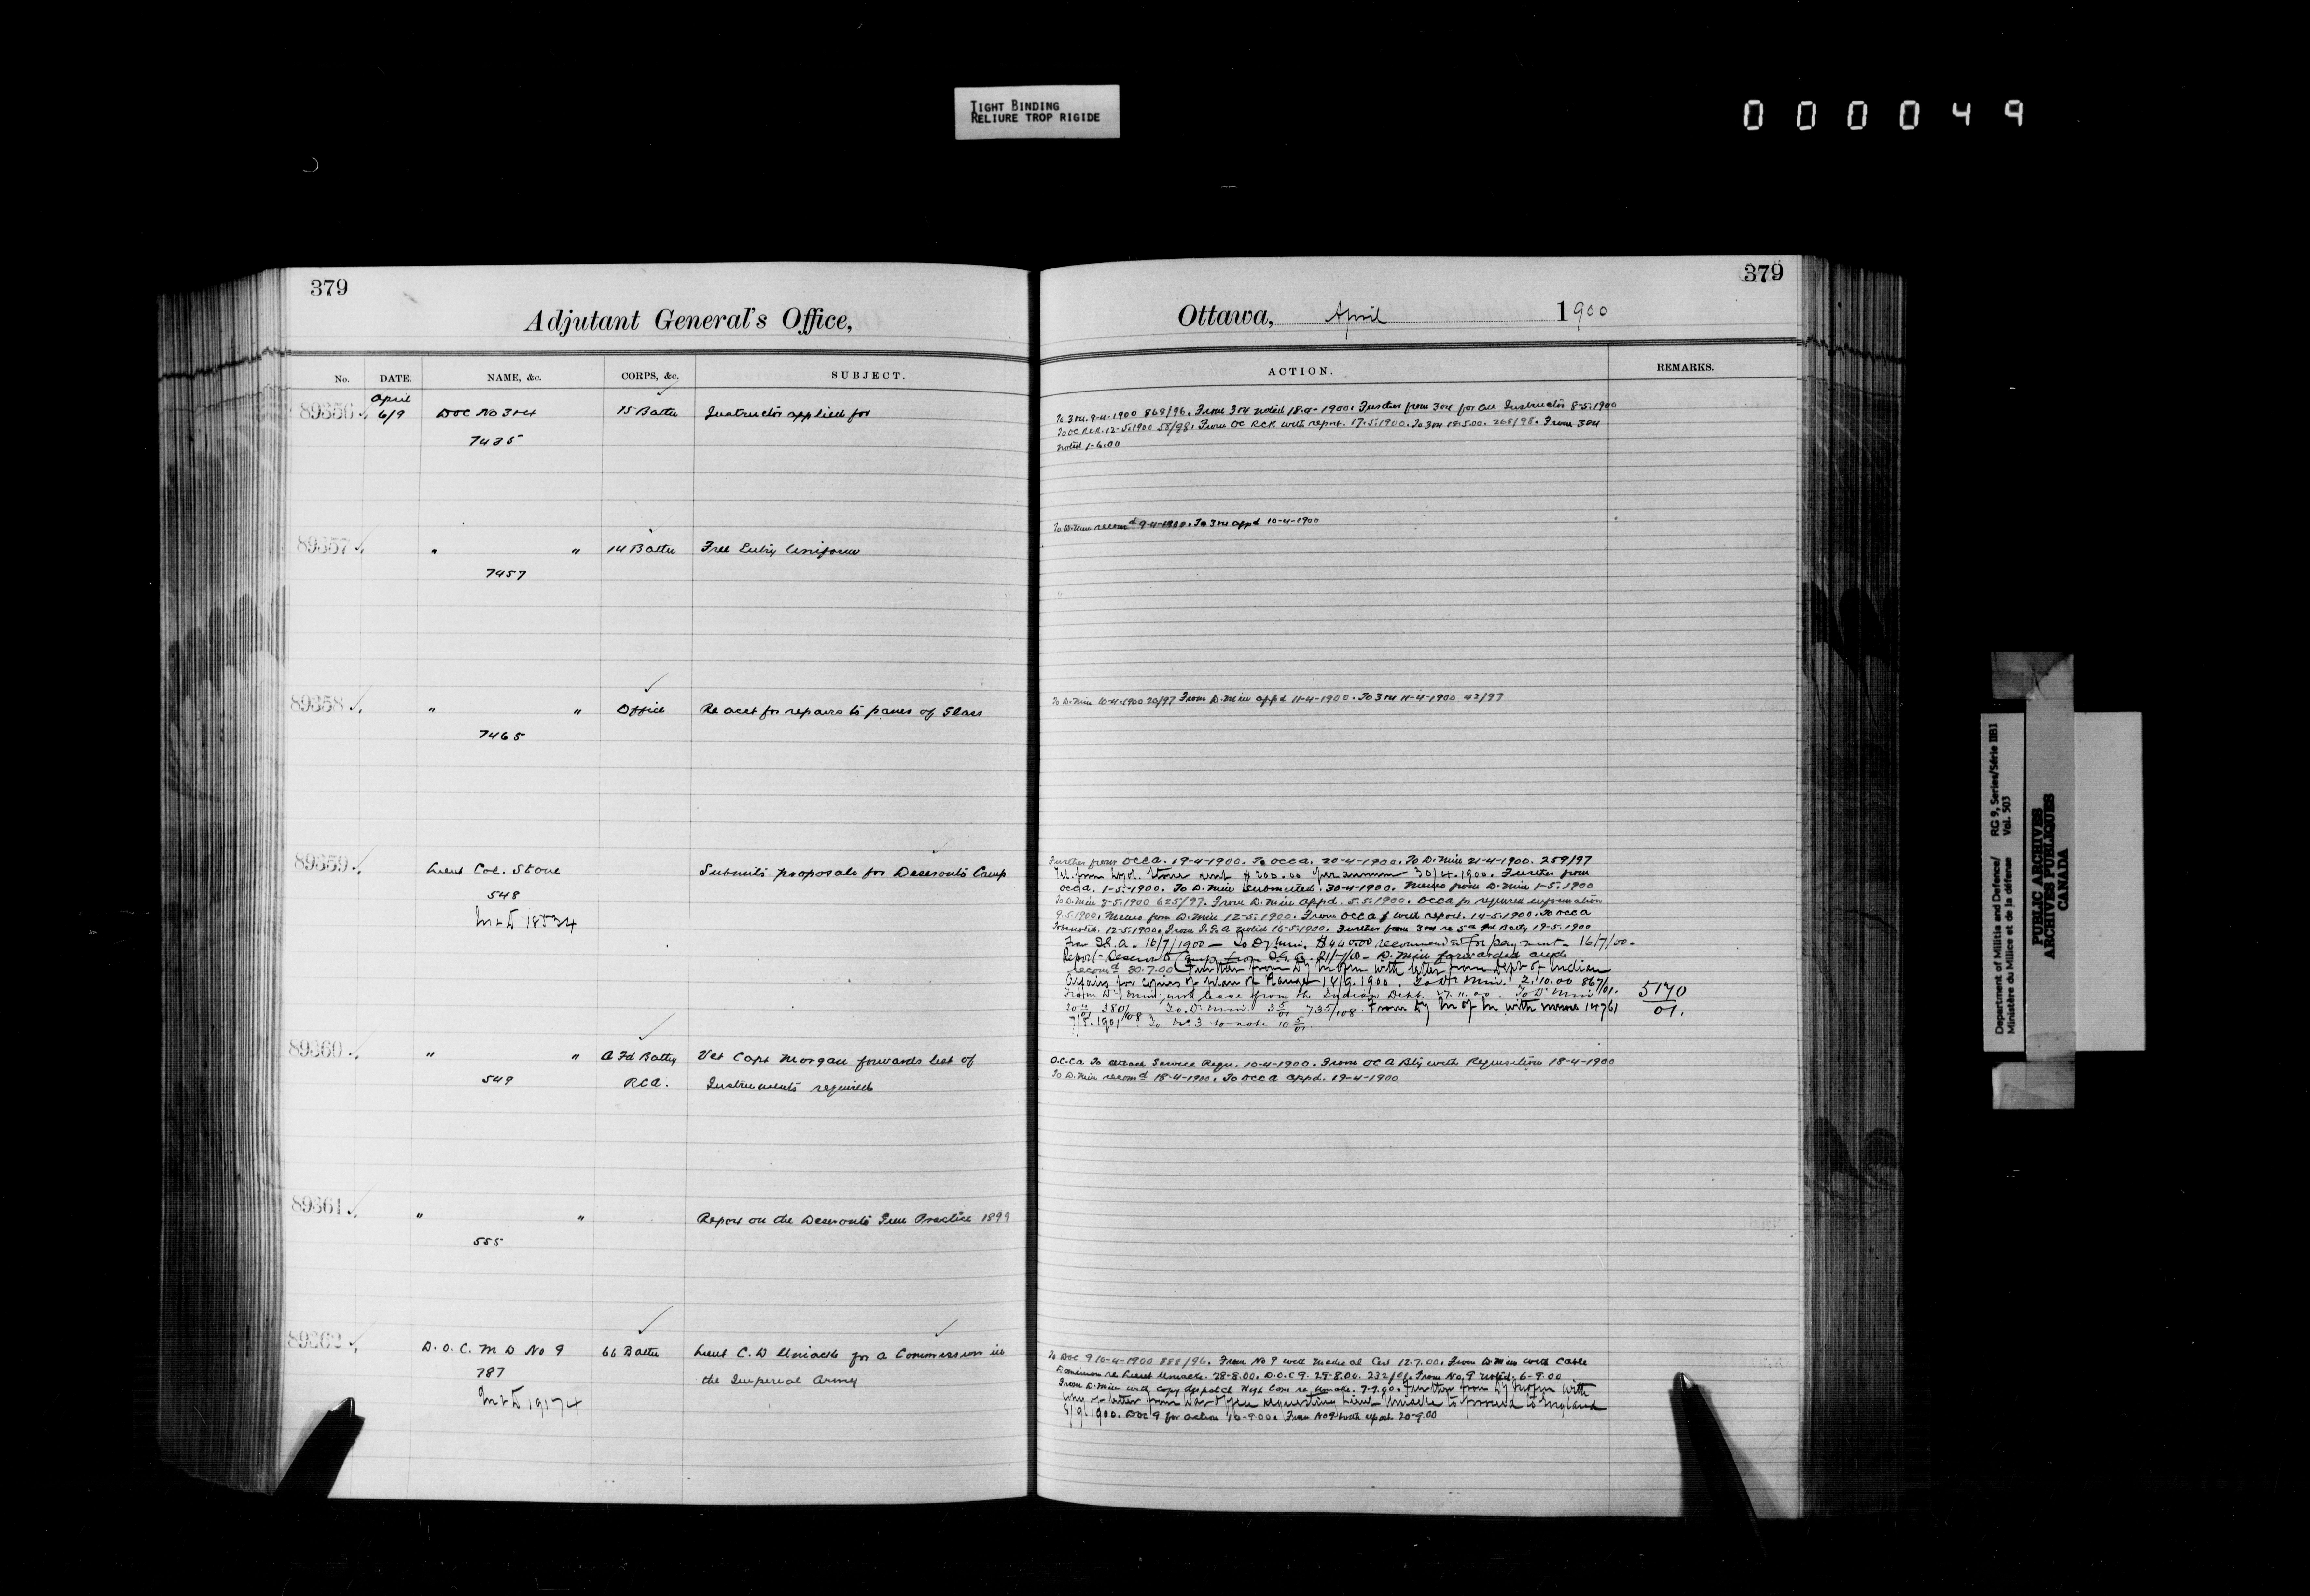 TIGHT BINDING
RELIURE TROP RIGIDE
000049
379
Adjutant General's Office,
No. DATE. NAME, &c. CORPS, &c. SUBJECT.
April
89356 6/9 DOC No 3&4 15 Battn Instructor applied for
7435
89357 " " 14 Battn Free Entry Uniform
7457
89358 " " Office Re acct for repairs to panes of Glass
7465
89359 Lieut Col. Stone Submits proposals for Deseronto Camp
548
M&D 18534
89360 " " A Fd Batty Vet Capt Morgan forwards list of
549 RCA. Instruments required
89361 " " Report on the Deseronto Gun Practice 1899
555
89362 D.O.C. M D No 9 66 Battn Lieut C. D Uniacke for a Commission in
787 the Imperial Army
M&D 19174
379
Ottawa, April 1900
ACTION. REMARKS.
To 3&4. 9-4-1900 868/96. From 3&4 noted 18-4-1900. Further from 3&4 for an Instructor 8-5-1900
To OC RCR. 12-5-1900 55/98. From OC RCR with report. 17-5-1900. To 3&4 18.5.00. 268/98. From 3&4
noted 1-6-00
To D. Min recomd 9-4-1900. To 3&4 appd 10-4-1900
To D. Min 10-4-1900 20/97 From D. Min appd 11-4-1900. To 3&4 11-4-1900 42/97
Further from OCCA. 19-4-1900. To OCCA. 20-4-1900. To D. Min 21-4-1900. 259/97
Tel. from Stone rent $200.00 per annum 30/4.1900. Further from
OCCA. 1-5-1900. To D. Min submitted. 30-4-1900. Memo from D. Min 1-5-1900
To D. Min 3-5-1900 625/97. From D. Min appd. 5.5.1900. OCCA for required information
9.5.1900. Memo from D. Min 12-5-1900. From OCCA with report. 14-5-1900. To OCCA
12-5-1900. From noted 16-5-1900. Further from 3&4 re 5th Fd Batty 19-5-1900
From 16/7/1900 — To Dy Min. recommended for payment — 16/7/00.
Report — Deseronto Camp from D. Min forwarded and
recomd 30.7.00 Further from Dy Min with letter from Dept of Indian
Affairs for copies of plan of Range 14/9.1900. To D. Min. 2.10.00 867/01.
From D. Min with lease from the Indian Dept. To D. Min 5170
380/ To D. Min 735/108. From Dy M of M with memo 14761 01.
7/5.1901 To No. 3 to note
O.C.CA To attach Service Requ. 10-4-1900. From OC A Bty with Requisition 18-4-1900
To D. Min recomd 18-4-1900. To OCCA appd. 19-4-1900
To DOC 9 10-4-1900 888/96. From No 9 with medical Cert 12.7.00. From D Min with Cable
re Lieut Uniacke. 28-8.00. D.O.C 9. 29-8.00. 232/01. From No. 9 noted. 6-9.00
From D. Min with copy dispatch High Com re Uniacke. 7-9.00. Further from Dy with
copy of letter from War Office requesting Lieut Uniacke to proceed to England
8/9.1900. DOC 9 for action 10-9.00. From No 9 with report 20-9.00
Department of Militia and Defence/
Ministère du Milice et de la défense
RG 9, Series/Série IIB1
Vol. 503
PUBLIC ARCHIVES
ARCHIVES PUBLIQUES
CANADA